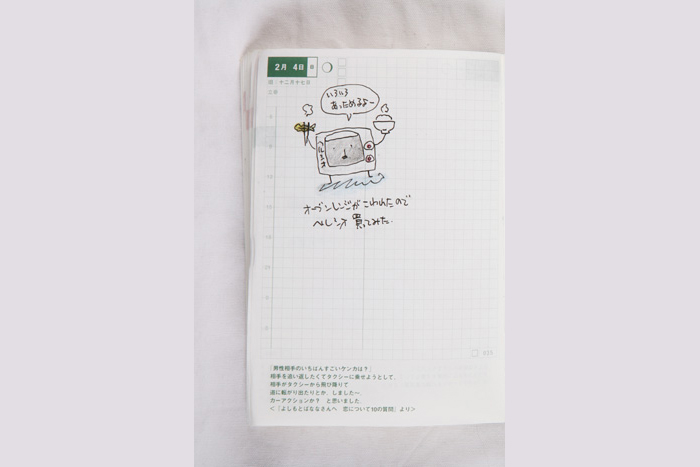 2月 4日
旧・十二月十七日
いろいろ
あっためるよー
ヘルシオ
オーブンレンジがこわれたので
ヘルシオ 買ってみた.
「男性相手のいちばんすごいケンカは？」
相手を追い返したくてタクシーに乗せようとして、
相手がタクシーから飛び降りて
道に転がり出たりとか、しました〜。
カーアクションか？ と思いました。
＜『よしもとばななさんへ 恋について10の質問』より＞